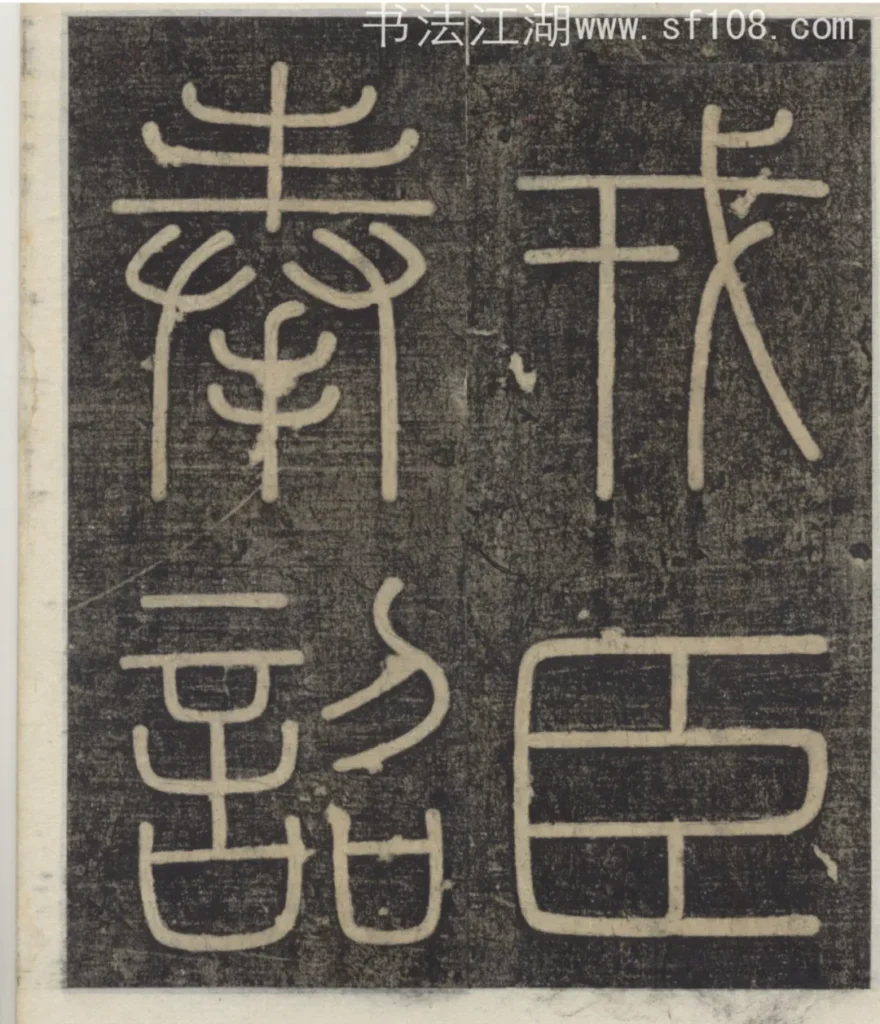 书法江湖www.sf108.com
戎臣
奉詔